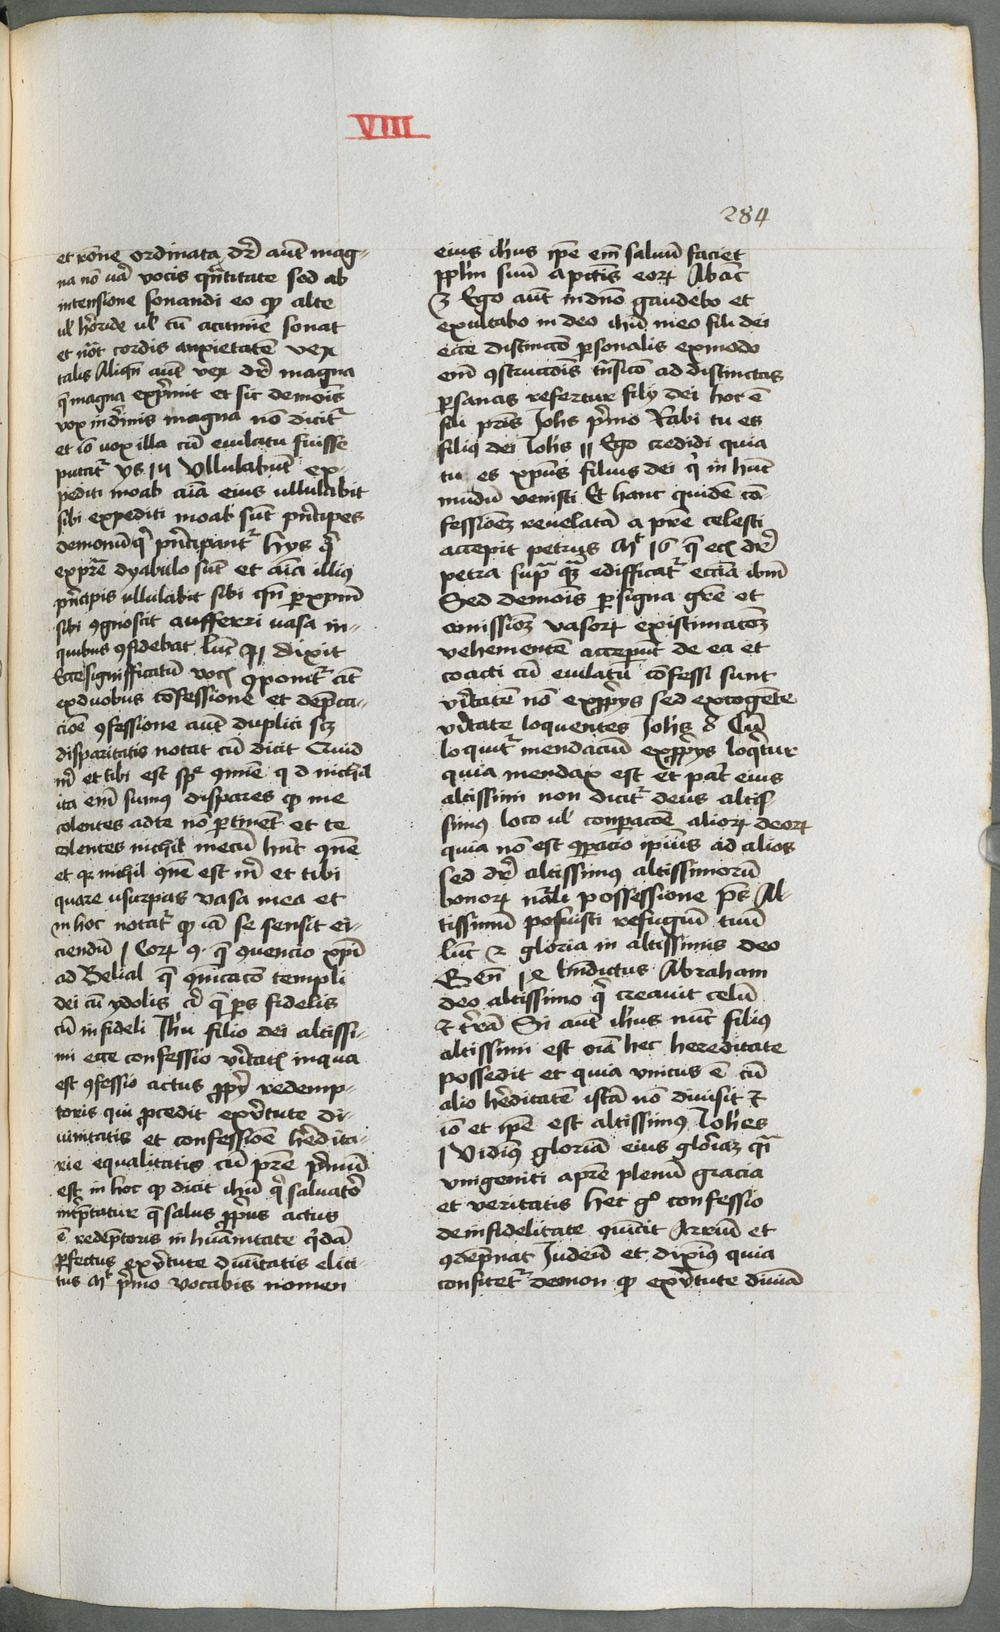 VIII
284
et rōne ordinata dr̄ aut̄ mag-
na nō vā vocis qn̄titate sed ab
intensione sonandi eo qꝫ alte
ul hōride ul cū acumīe sonat
et nōt cordis anxietatē vex
talis Aliqn̄ aut̄ vex dr̄ magna
q̄ magna exp̄mit et sic demōis
vox in dīnis magna nō dicit᷑
et iō vox illa cū eiulatu fuisse
putat᷑ ys 14 Ullulabūt ex-
pediti moab aīa eius ullulabit
sibi expediti moab sūt pn̄cipes
demonū q̄ pn̄cipant᷑ hys q̄
exp̄te dyabulo sūt et aīa illiꝰ
pn̄cipis ullulabit sibi qn̄ ꝑ xp̄m
sibi ꝯgnoscit aufferri vasa in-
quibus ꝯfidebat luc̄ 11 dixit
Ecce significatū voc̄ ꝯponit᷑ aūt
ex duobus cōfessione et dep̄ca-
cioē ꝯfessione aut̄ duplici scꝫ
disparitatis notat cū dicit Quid
m̄ et tibi est sp̄ ꝯmūe q d nichil
ita em̄ sumꝰ dispares qꝫ me
colentes ad te nō ꝑtinēt et te
colentes nichil mecū hn̄t ꝯmūe
et qꝛ nichil ꝯmūe est m̄ et tibi
quare usurpas vasa mea et
in hoc notat᷑ qꝫ iā se sensit ei-
ciendū 1 Coꝝ 9 q̄ ꝯvencio xp̄i
ad Belial q̄ ꝯmūicacō templi
dei cū ydolis ā q̄ ꝑs fidelis
cū infideli Jh̄u filio dei altissi-
mi ecce confessio vītat̄ in qua
est ꝯfessio actus ꝓpȳ redemp-
toris qui ꝓcedit ex v̄tute di-
vinitatis et confessiōe hēdita-
rie equalitatis cū pr̄e p̄mū
est in hoc qꝫ dicit ih̄u q̄ salvatō
int̄ptatur q̄ salus ꝓpͥus actus
ē redēptoris in hūanitate qͥdā
ꝑfectus ex v̄tute divītatis elici-
tus Mͭ pͥmo vocabis nomen
eius ih̄us ip̄e em̄ salvū faciet
pplm̄ suū a pctīs eoꝝ Abac̄
3 Ego aūt in dn̄o gaudebo et
exultabo in deo ih̄u meo fili dei
ecce distinctō ꝑsonalis ex modo
em̄ ꝯstructōis tn̄sicō ad distinctas
ꝑsonas refertur filiꝰ dei hoc ē
fili pr̄is Joh̄s pͥmo Rabi tu es
filiꝰ dei Joh̄s 11 Ego credidi quia
tu es xp̄us filius dei qͥ in hūc
mūdū venisti Et hanc quidē cō-
fessionē revelatā a pr̄e celesti
accepit petrus Mͭ 16 q̄ ecꝫ dr̄
petra supͣ quā edifficat᷑ eccīa ib̄m
Sed demōis ꝑ signa gr̄e et
emissionē vasoꝝ existimacōꝫ
vehementē acceperūt de ea et
coacti cū eiulatū cōfessi sunt
v̄itatē nō ex ꝓpͥys sed ex cogēte
v̄itate loquentes Joh̄s 8 Cū
loquit᷑ mendaciū ex ꝓpͥys loqͥtur
quia mendax est et pat̄ eius
altissimi non dicit᷑ deus altis-
simꝰ loco ul conꝑacōe alioꝝ deoꝝ
quia nō est ꝯꝑacio ipsiꝰ ad alios
sed dr̄ altissimꝰ altissimorū
bonoꝝ nāli possessione ps̄ Al-
tissimū posuisti refugiū tuū
luc̄ 2 gloria in altissimis deo
Gen̄ 14 bn̄dictus Abraham
deo altissimo qͥ creavit celū
⁊ tr̄ā Si aūt ih̄us nūc filiꝰ
altissimi est oīa hec hereditate
possedit et quia unicus ē cū
alio hēditatē istā nō divisit ⁊
iō et ip̄e est altissimꝰ Joh̄es
1 Vidimꝰ gloriā eius glōiaꝫ q̄i
unigeniti a pr̄e plenū gracia
et veritatis hec gͦ confessio
de infidelitate ꝯvīcit Arriū et
ꝯdēpnat Judeū et diximꝰ quia
confitet᷑ demon qꝫ ex v̄tute divīa